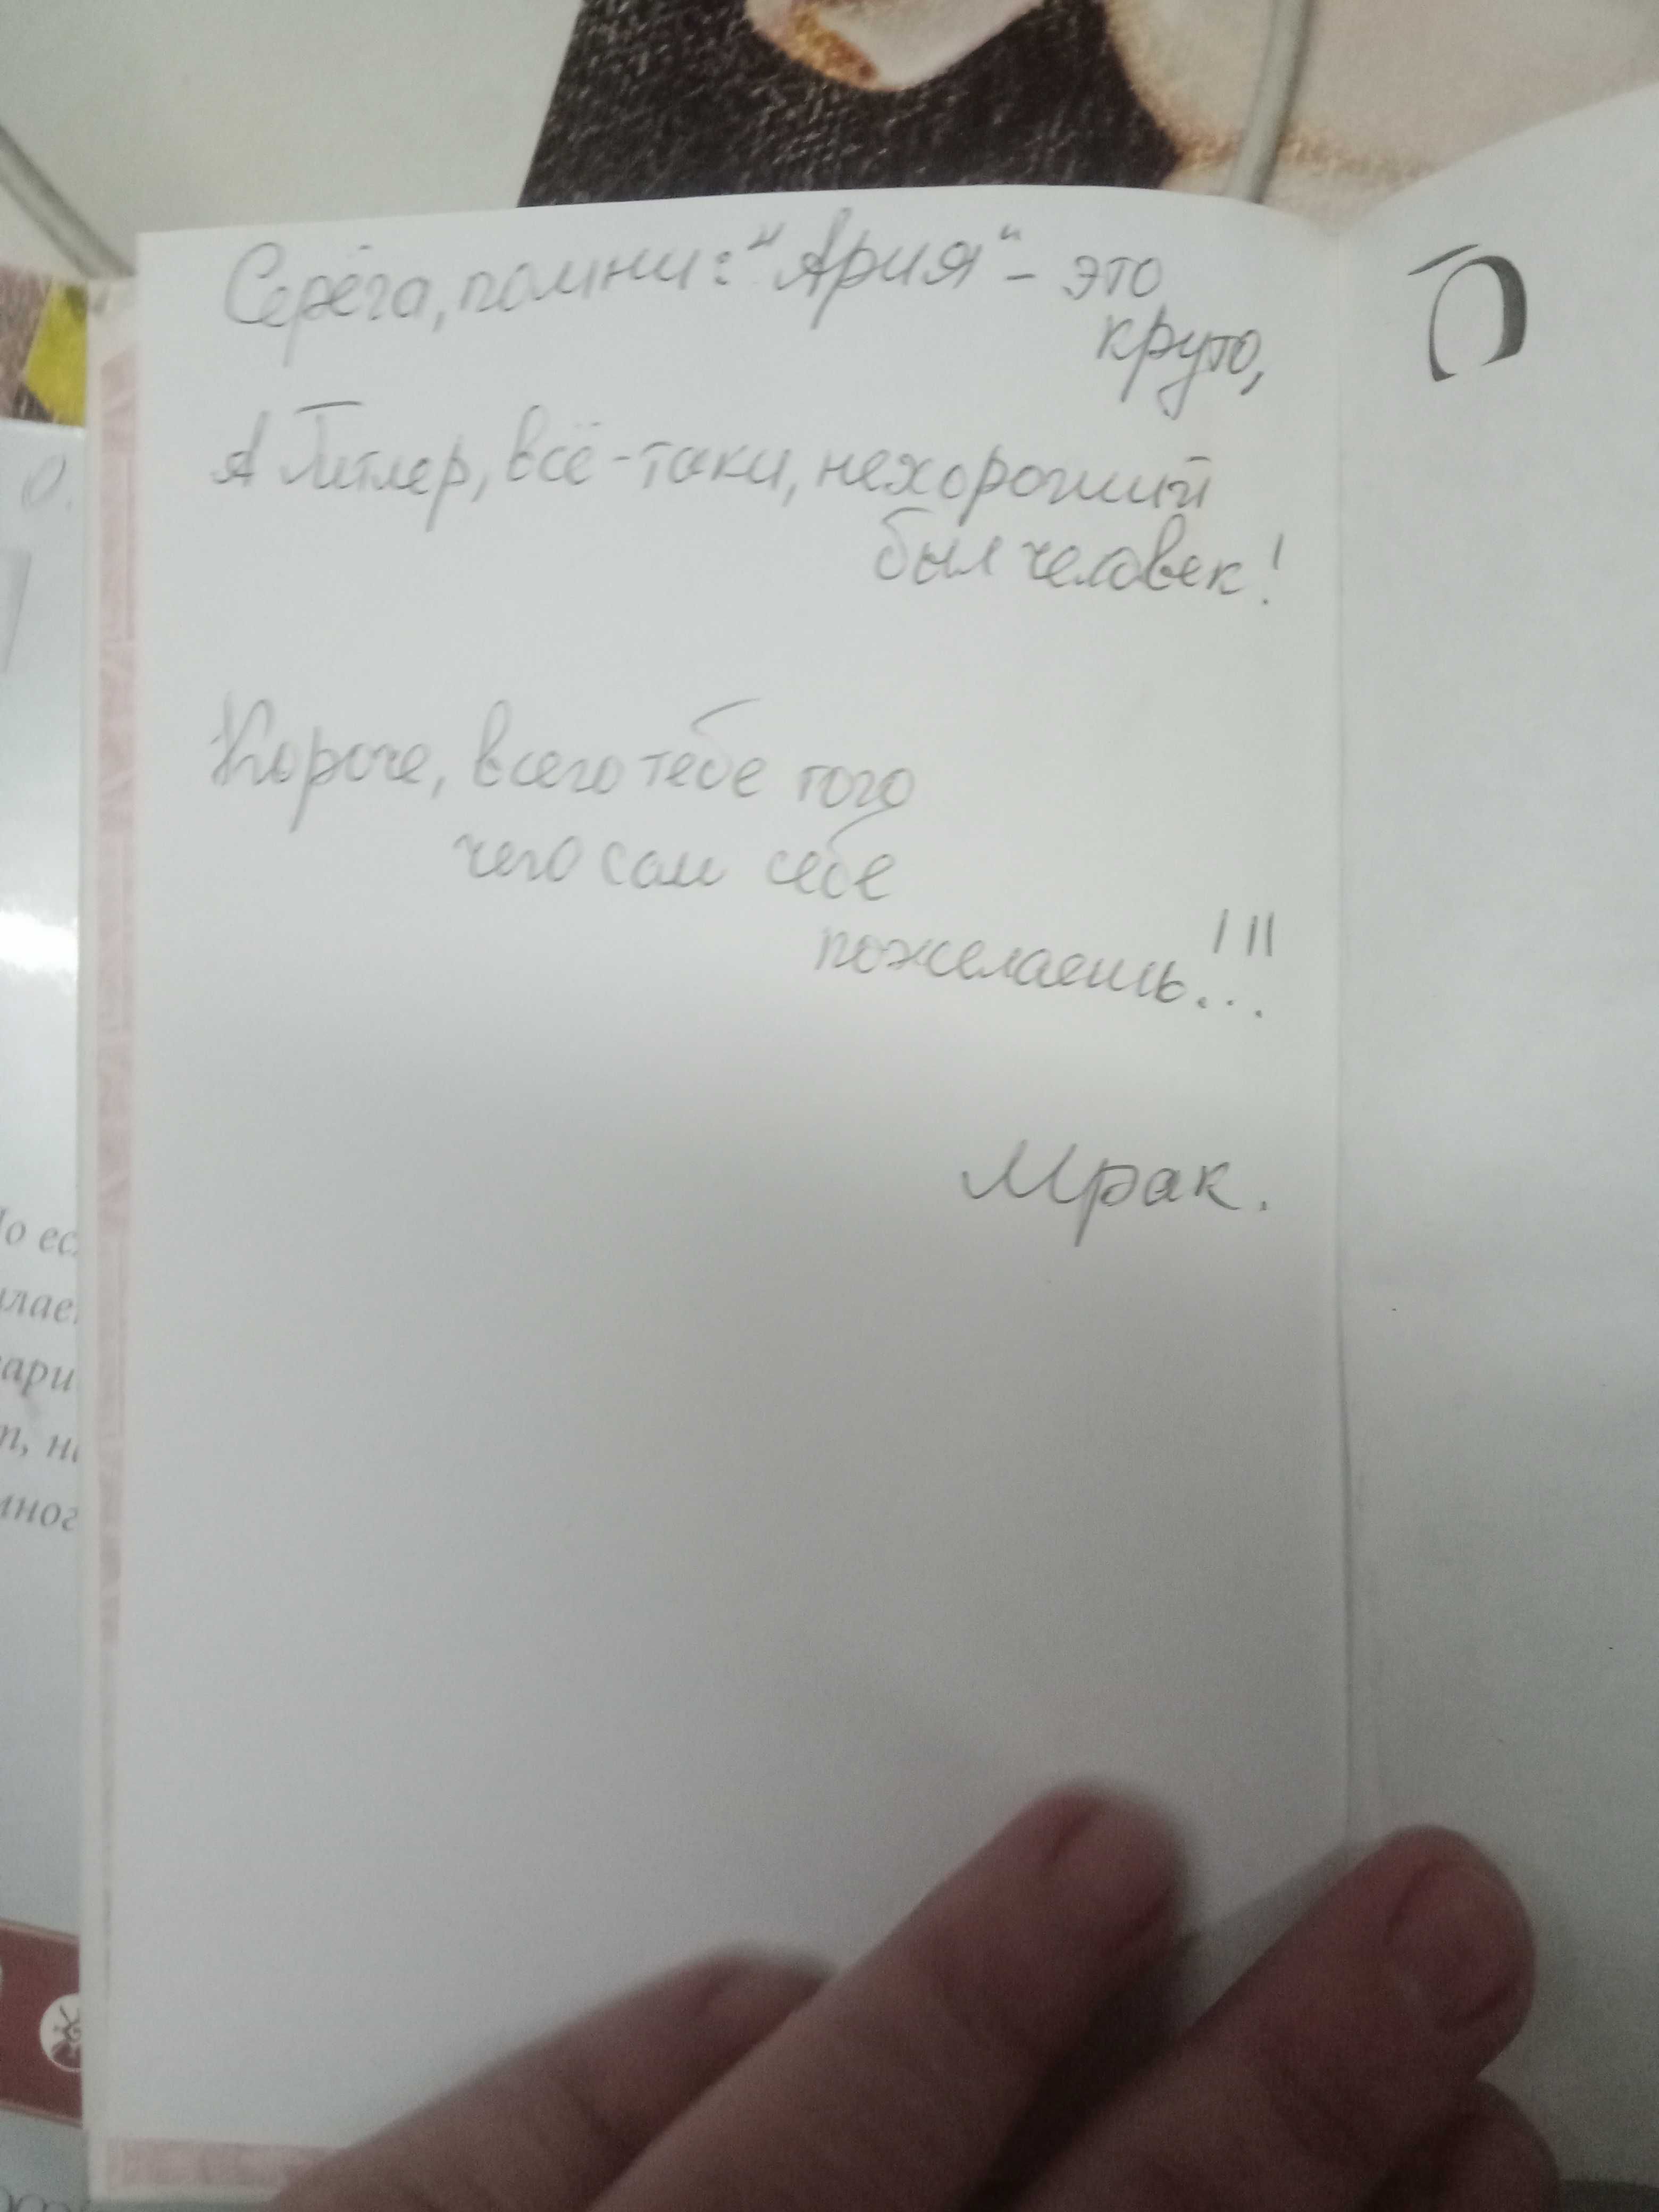 Серёга, помни: "Ария" - это
круто,
А Гитлер, всё-таки, нехороший
был человек!
Короче, всего тебе того
чего сам себе
пожелаешь!!!
Мрак.